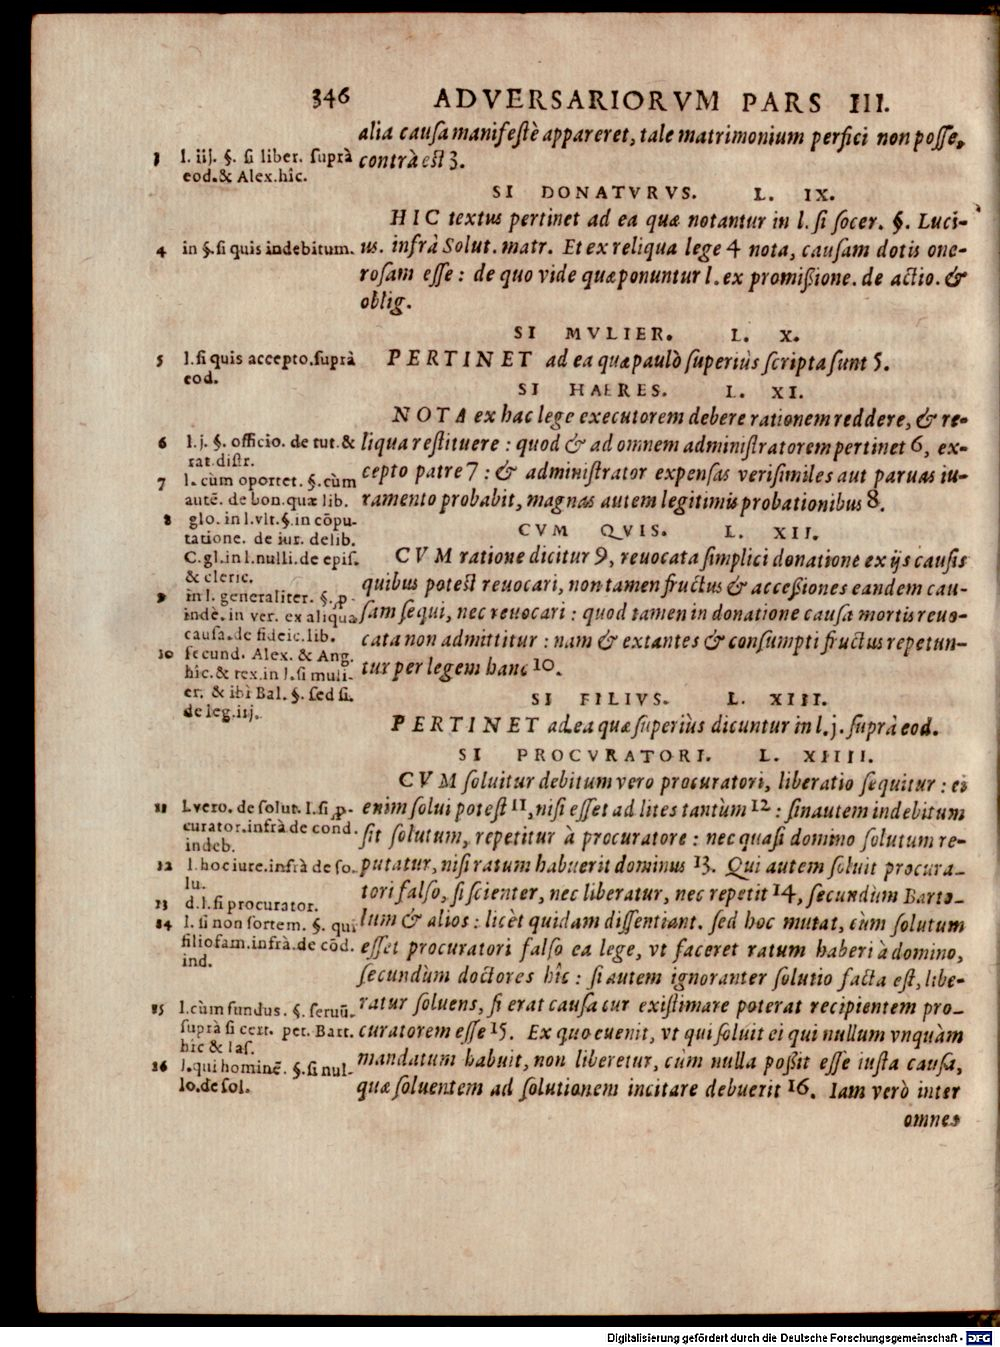 346 ADVERSARIORVM PARS III.
alia causa manifestè appareret, tale matrimonium perfici non posse,
contrà est 3.
SI DONATVRVS. L. IX.
HIC textus pertinet ad ea quæ notantur in l. si socer. §. Luci-
us. infrà Solut. matr. Et ex reliqua lege 4 nota, causam dotis one-
rosam esse : de quo vide quæ ponuntur l. ex promißione. de actio. &
oblig.
SI MVLIER. L. X.
PERTINET ad ea quæ paulò superiùs scripta sunt 5.
SI HAERES. L. XI.
NOTA ex hac lege executorem debere rationem reddere, & re-
liqua restituere : quod & ad omnem administratorem pertinet 6, ex-
cepto patre 7 : & administrator expensas verisimiles aut paruas iu-
ramento probabit, magnas autem legitimis probationibus 8.
CVM QVIS. L. XII.
CVM ratione dicitur 9, reuocata simplici donatione ex ijs causis
quibus potest reuocari, non tamen fructus & acceßiones eandem cau-
sam sequi, nec reuocari : quod tamen in donatione causa mortis reuo-
cata non admittitur : nam & extantes & consumpti fructus repetun-
tur per legem hanc 10.
SI FILIVS. L. XIII.
PERTINET ad ea quæ superiùs dicuntur in l. j. suprà eod.
SI PROCVRATORI. L. XIIII.
CVM soluitur debitum vero procuratori, liberatio sequitur : ei
enim solui potest 11, nisi esset ad lites tantùm 12 : sin autem indebitum
sit solutum, repetitur à procuratore : nec quasi domino solutum re-
putatur, nisi ratum habuerit dominus 13. Qui autem soluit procura-
tori falso, si scienter, nec liberatur, nec repetit 14, secundùm Barto-
lum & alios : licèt quidam dissentiant. sed hoc mutat, cùm solutum
esset procuratori falso ea lege, vt faceret ratum haberi à domino,
secundùm doctores hîc : si autem ignoranter solutio facta est, libe-
ratur soluens, si erat causa cur existimare poterat recipientem pro-
curatorem esse 15. Ex quo euenit, vt qui soluit ei qui nullum vnquàm
mandatum habuit, non liberetur, cùm nulla poßit esse iusta causa,
quæ soluentem ad solutionem incitare debuerit 16. Iam verò inter
omnes
3 l. iij. §. si liber. suprà
eod. & Alex. hîc.
4 in §. si quis indebitum.
5 l. si quis accepto. suprà
eod.
6 l. j. §. officio. de tut. &
rat. distr.
7 l. cùm oportet. §. cùm
autē. de bon. quæ lib.
8 glo. in l. vlt. §. in cōpu-
tatione. de iur. delib.
C. gl. in l. nulli. de epis.
& cleric.
9 in l. generaliter. §. ꝓ-
indè. in ver. ex aliqua
causa. de fideic. lib.
10 secund. Alex. & Ang.
hîc. & rex. in l. si muli-
er. & ibi Bal. §. sed si.
de leg. iij.
11 l. vero. de solut. l. si ꝓ-
curator. infrà de cond.
indeb.
12 l. hoc iure. infrà de so-
lu.
13 d. l. si procurator.
14 l. si non sortem. §. qui
filiofam. infrà. de cōd.
ind.
15 l. cùm fundus. §. seruū.
suprà si cert. pet. Bart.
hic & Ias.
16 l. qui hominē. §. si nul-
lo. de sol.
Digitalisierung gefördert durch die Deutsche Forschungsgemeinschaft - DFG